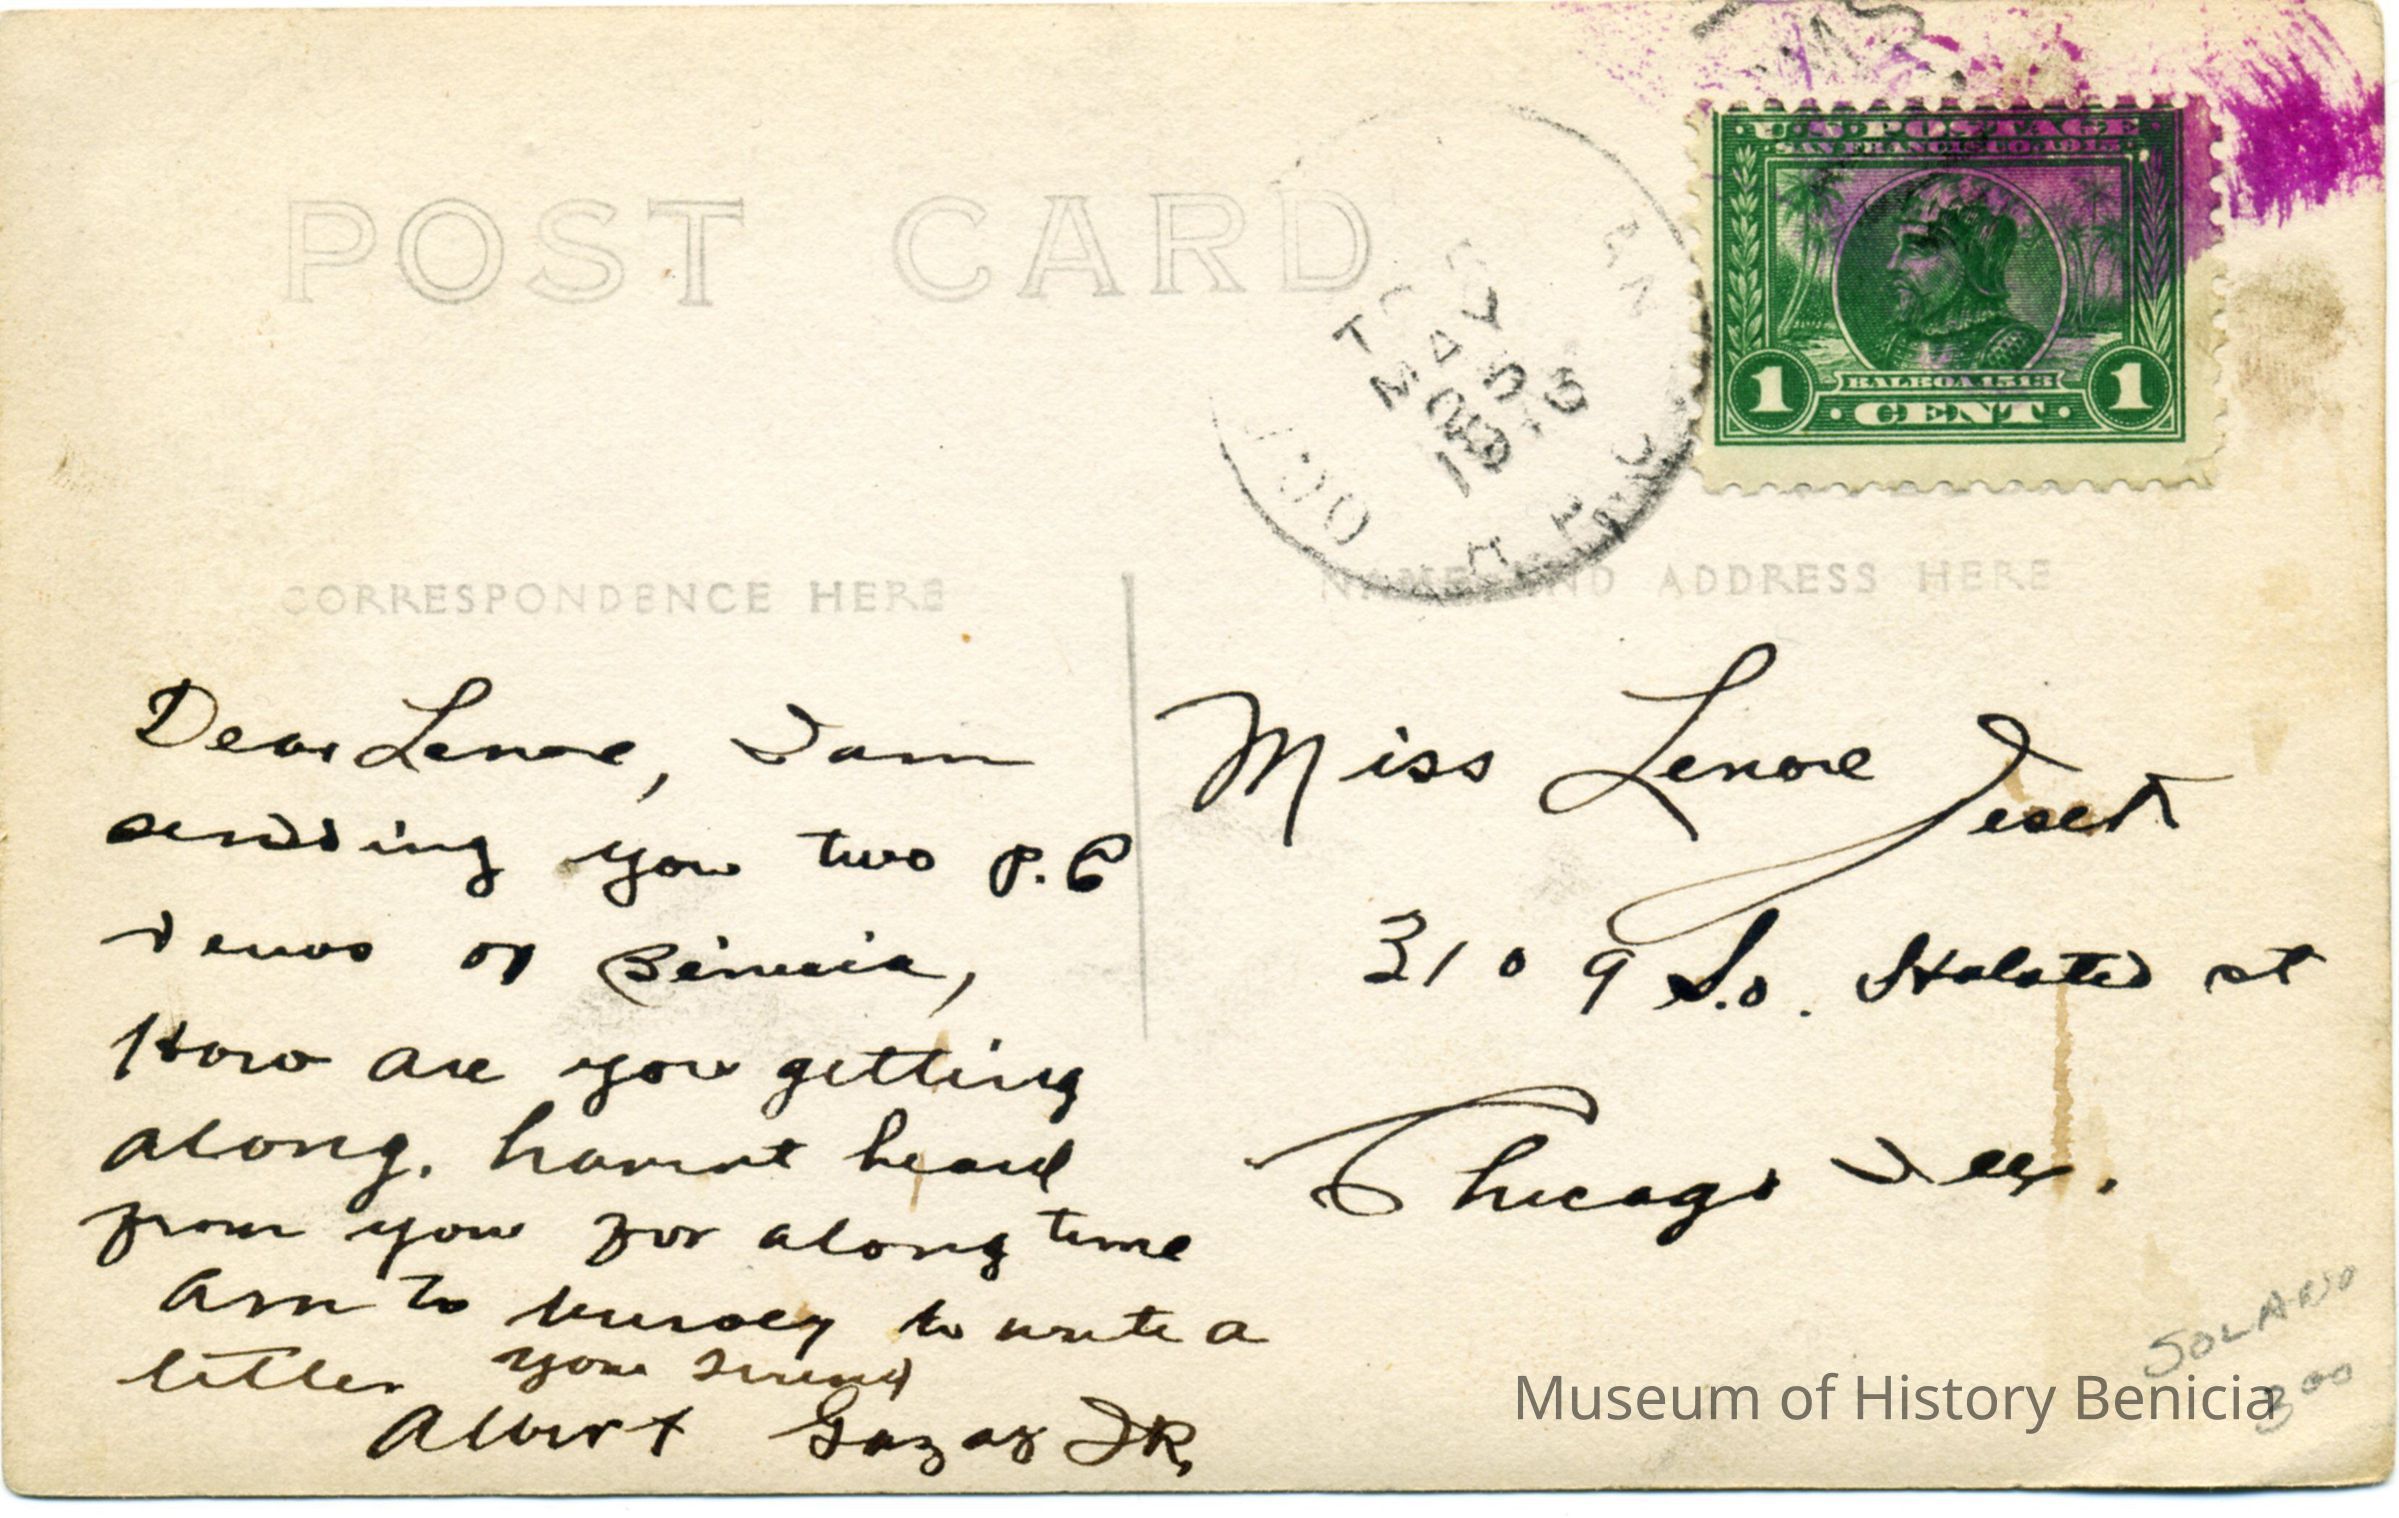 U.S. POSTAGE
SAN FRANCISCO, 1915
BALBOA 1513
1 CENT 1
POST CARD
MAY 5
CORRESPONDENCE HERE
NAME AND ADDRESS HERE
Dear Lenore, I am
sending you two P.C
views of Benicia,
How are you getting
along. havent heard
from you for along time
am to buisey to write a
letter your Friend
Albert Gazaz JR.
Miss Lenore
3109 So. Halsted st
Chicago Ill.
SOLANO
3 00
Museum of History Benicia